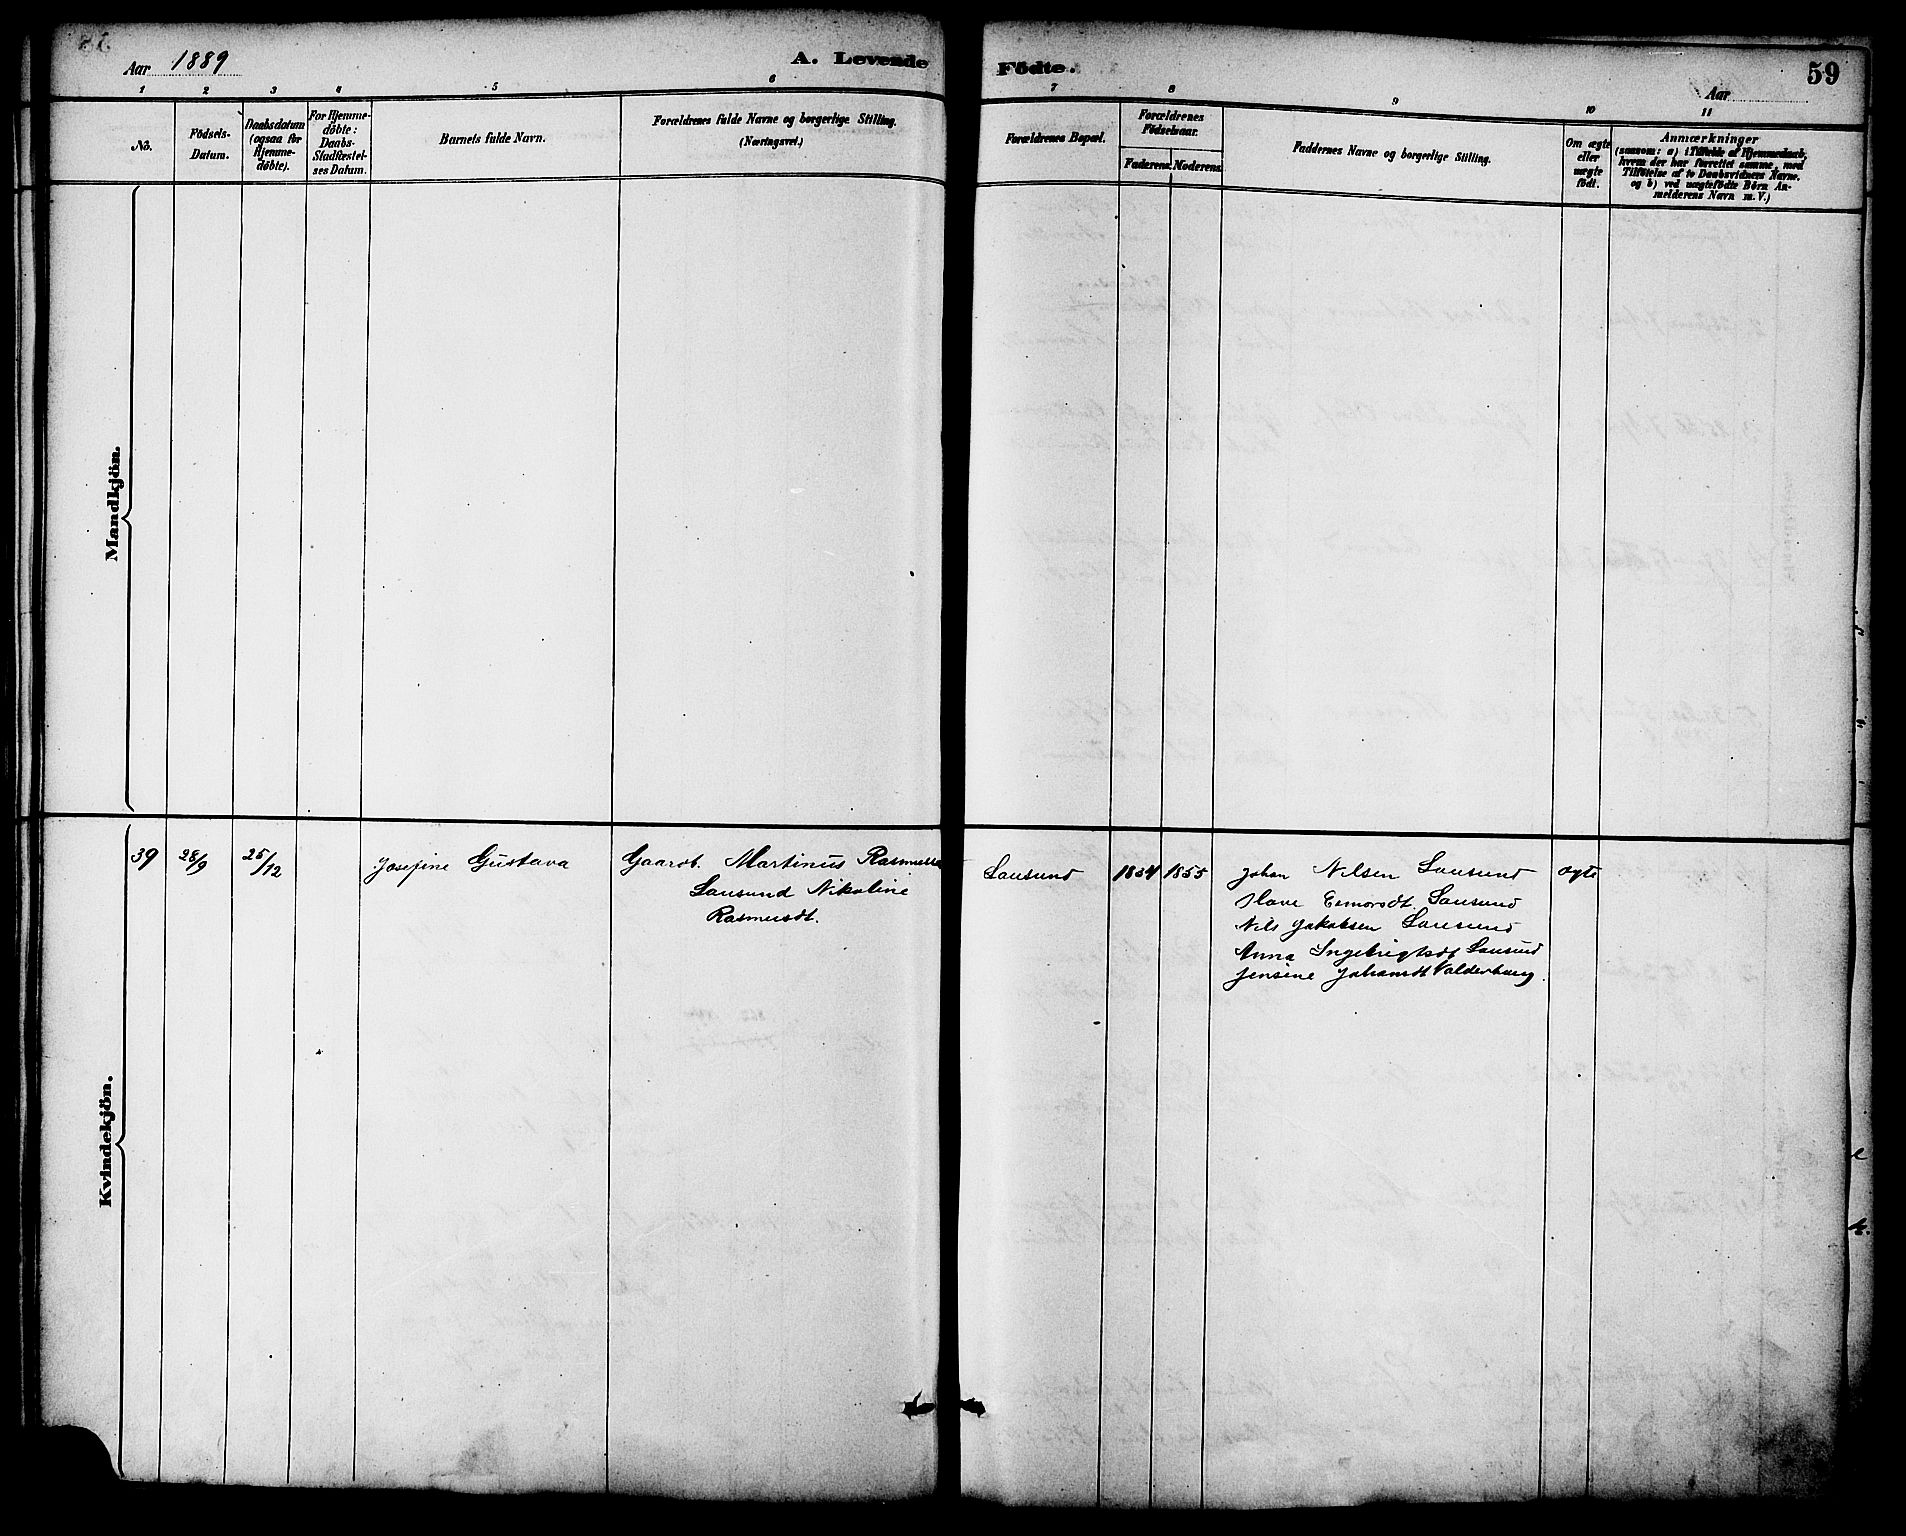 Aar 1889
A. Levende
Födte.
59
Aar
1 2 3 4 5 6 7 8 9 10 11
No.
Födsels-
Datum.
Daabsdatum
(ogsaa for
Hjemme-
döbte).
For Hjemme-
döbte:
Daabs-
Stadfæstel-
ses Datum.
Barnets fulde Navn.
Forældrenes fulde Navne og borgerlige Stilling.
(Næringsvei.)
Forældrenes Bopæl.
Forældrenes
Födselsaar.
Faderens. Moderens.
Faddernes Navne og borgerlige Stilling.
Om ægte
eller
uægte
födt.
Anmærkninger
(saasom: a) i Tilfælde af Hjemmedaab,
hvem der har forrettet samme, med
Tilföielse af to Daabsvidners Navne,
og b) ved uægtefödte Börn An-
melderens Navn m. V.)
Mandkjön.
Kvindekjön.
39
28/9
25/12
Josefine Gustava
Gaardb. Martinus Rasmussen
Sausund Nikoline
Rasmusdt.
Sausund
1834 1855
Johan Nilsen Sausund
Einarsdt. Sausund
Nils Jakobsen Sausund
Anna Ingebrigtsdt Sausund
Jensine Johansdt Valderhaug
ægte